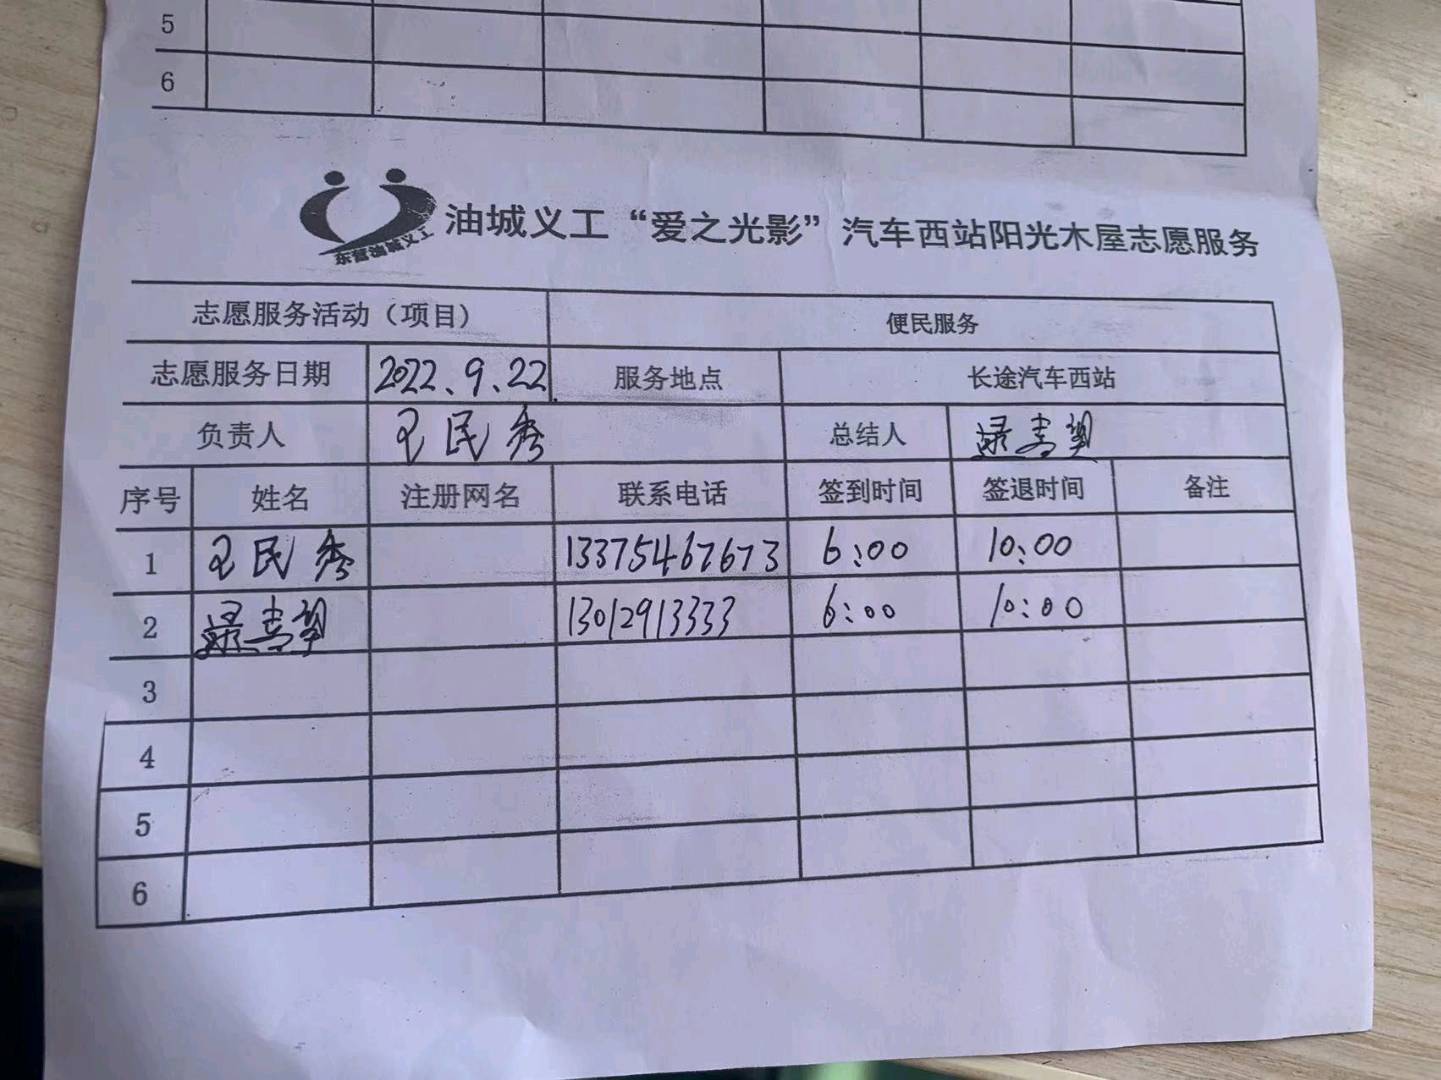 5
6
东营油城义工
油城义工“爱之光影”汽车西站阳光木屋志愿服务
志愿服务活动（项目） 便民服务
志愿服务日期 2022、9、22 服务地点 长途汽车西站
负责人 王民秀 总结人
序号 姓名 注册网名 联系电话 签到时间 签退时间 备注
1 王民秀 13375467673 6:00 10:00
2 13012913333 6:00 10:00
3
4
5
6